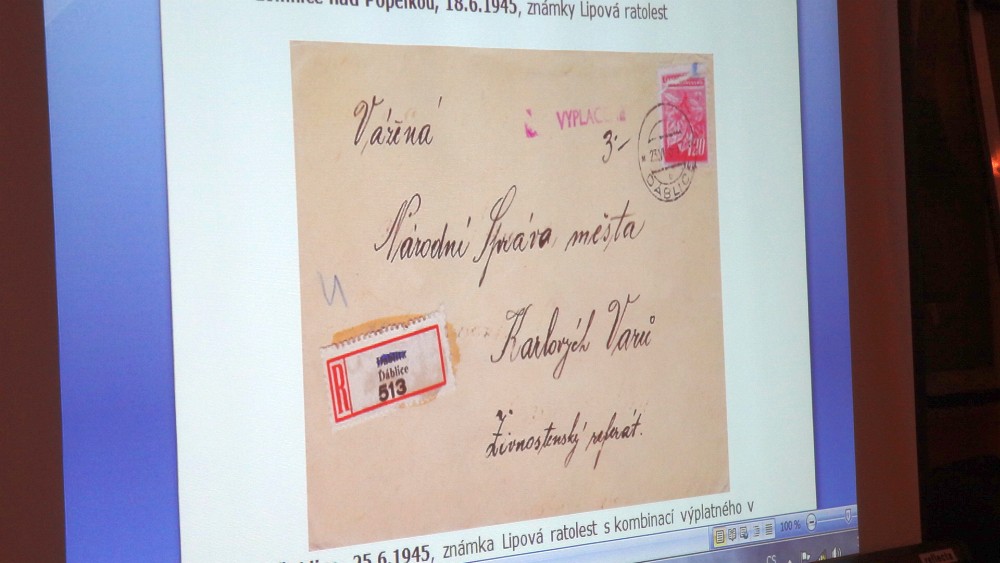 nad Popelkou, 18.6.1945, známky Lipová ratolest
VYPLAC
3·-
1·20
ĎÁBLIC
Vážená
Národní Správa města
Karlových Varů
Živnostenský referát.
R
Ďáblice
513
25.6.1945, známka Lipová ratolest s kombinací výplatného v
100 %
CS